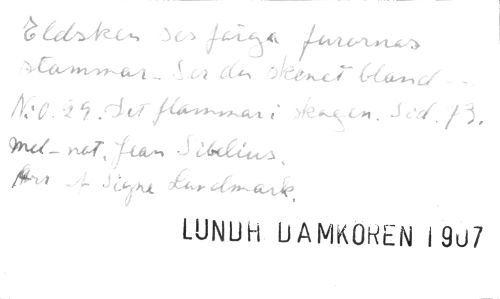 Eldsken ses färga furornas
stammar. Ser du skenet bland...
N:o. 29. Det flammar i skogen. Sid. 73.
Mel-not. Jean Sibelius.
Arr Signe Landmark.
LUNDH DAMKÖREN 1907